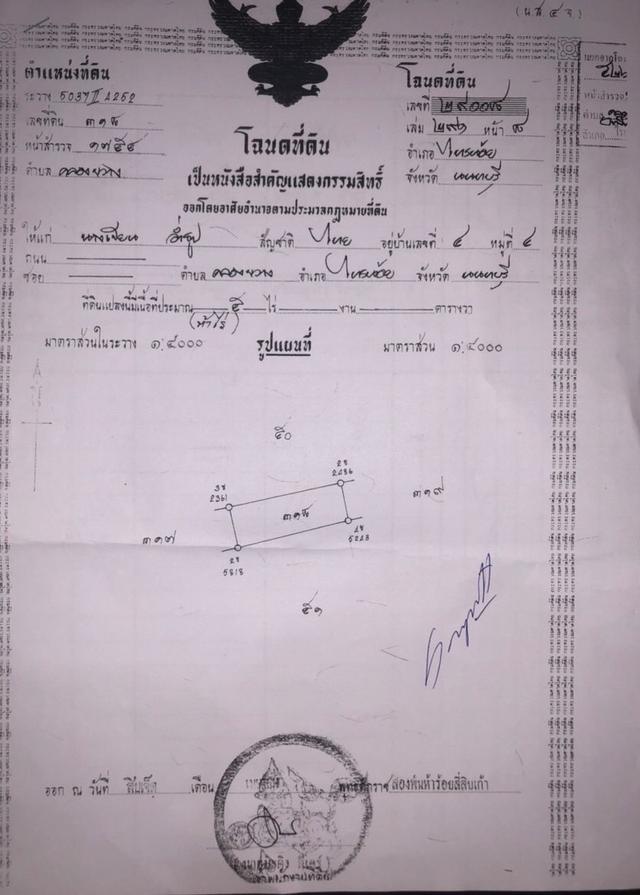 (น.ส.๔ จ)
ตำแหน่งที่ดิน
ระวาง 5037 II 4252
เลขที่ดิน ๓๑๘
หน้าสำรวจ ๑๗๕๔
ตำบล คลองขวาง
โฉนดที่ดิน
เลขที่ ๒๙๐๐๘
เล่ม ๒๙๑ หน้า ๘
อำเภอ ไทรน้อย
จังหวัด นนทบุรี
โฉนดที่ดิน
เป็นหนังสือสำคัญแสดงกรรมสิทธิ์
ออกโดยอาศัยอำนาจตามประมวลกฎหมายที่ดิน
ให้แก่ สัญชาติ ไทย อยู่บ้านเลขที่ ๔ หมู่ที่ ๔
ถนน
ซอย ตำบล คลองขวาง อำเภอ ไทรน้อย จังหวัด นนทบุรี
ที่ดินแปลงนี้มีเนื้อที่ประมาณ ๕ ไร่ งาน ตารางวา
(ห้าไร่)
มาตราส่วนในระวาง ๑:๔๐๐๐ รูปแผนที่ มาตราส่วน ๑:๔๐๐๐
๕๐
2486
2361
๓๑๘
๓๑๙
๓๑๗
5243
5818
๕๑
ออก ณ วันที่ สิบเจ็ด เดือน พุทธศักราช สองพันห้าร้อยสี่สิบเก้า
เจ้าพนักงานที่ดิน